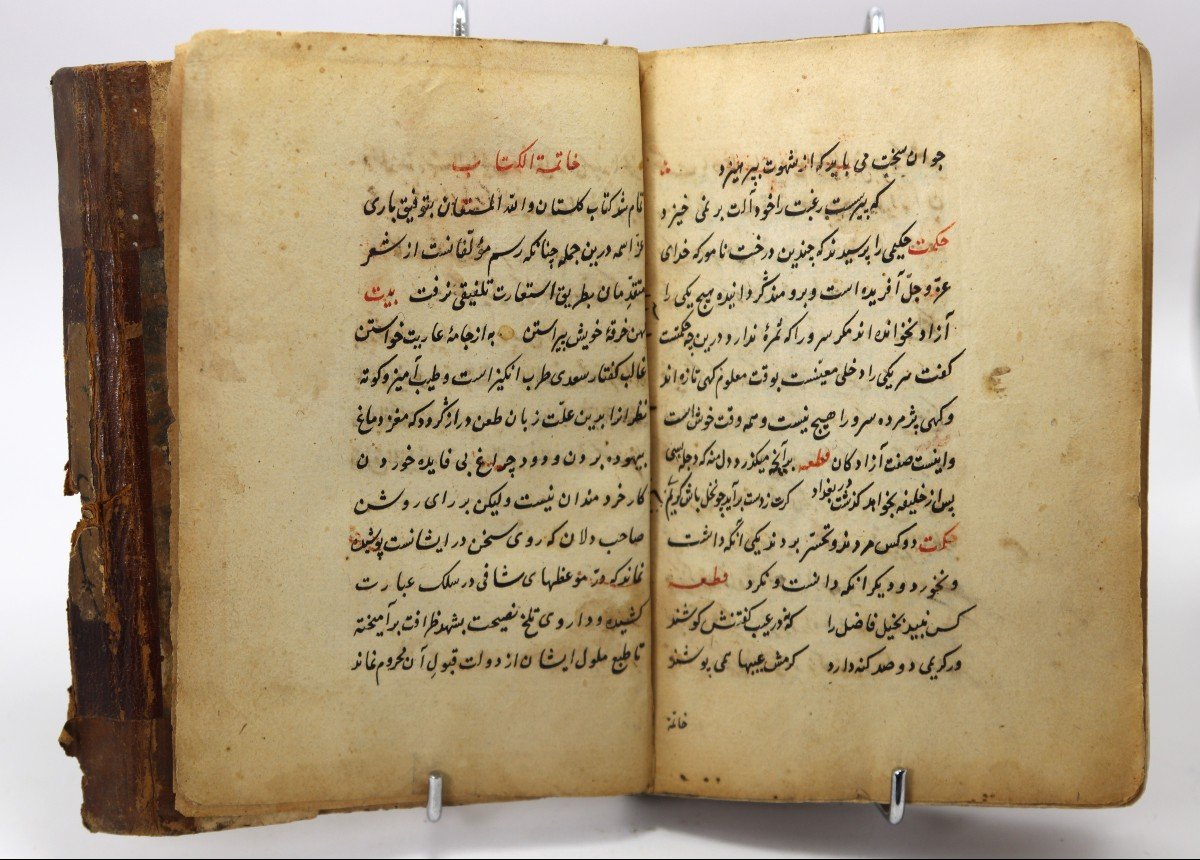 جوان سخت می باید که از شهوت بپرهیزد
که پیر سست رغبت را خود آلت بر نمی خیزد
حکمت حکیمی را پرسیدند که چندین درخت نامور که خدای
عزّ و جلّ آفریده است و برومند گردانیده هیچ یکی را
آزاد نخوانده اند مکر سرو را که ثمرهٔ ندارد درین چه حکمتست
کفت هر یکی را دخلی معینست بوقت معلوم کهی تازه اند
و کهی پژمرده سرو را هیچ نیست و همه وقت خوش است
و اینست صفة آزادکان قطعه بر آنچه میکذرد دل منه که دجله بسی
پس از خلیفه بخواهد کذشت در بغداد کرت ز دست برآید چو نخل باش کریم
حکمت دو کس مردند و تحسّر بردند یکی آنکه داشت
و نخورد و دیکر آنکه دانست و نکرد قطعه
کس نبیند بخیل فاضل را که نه در عیب کفتنش کوشند
ور کریمی دو صد کنه دارد کرمش عیبهای می پوشند
خاتمة
خاتمة الکتاب
تمام شد کتاب کلستان و الله المستعان بتوفیق باری
عزّ اسمه درین جمله چنانکه رسم مؤلّفانست از شعر
متقدّمان بطریق استعارت تلفیقی نرفت بیت
کهن خرقهٔ خویش پیراستن به از جامهٔ عاریت خواستن
غالب کفتار سعدی طرب انکیز است و طیب آمیز و کوته
نظرانرا بدین علّت زبان طعن دراز کردد که مغز دماغ
بیهوده بردن و دود چراغ بی فایده خوردن
کار خردمندان نیست ولیکن بر رای روشن
صاحب دلان که روی سخن در ایشانست پوشیده
نماند که درّ موعظهای شافی در سلک عبارت
کشیده و داروی تلخ نصیحت بشهد ظرافت برآمیخته
تا طبع ملول ایشان از دولت قبول آن محروم نماند